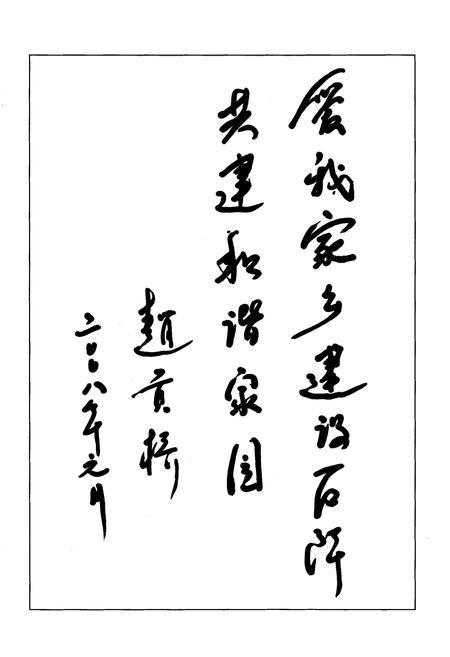 爱我家乡建设石阡
共建和谐家园
趙贡桥
二〇〇八年元月